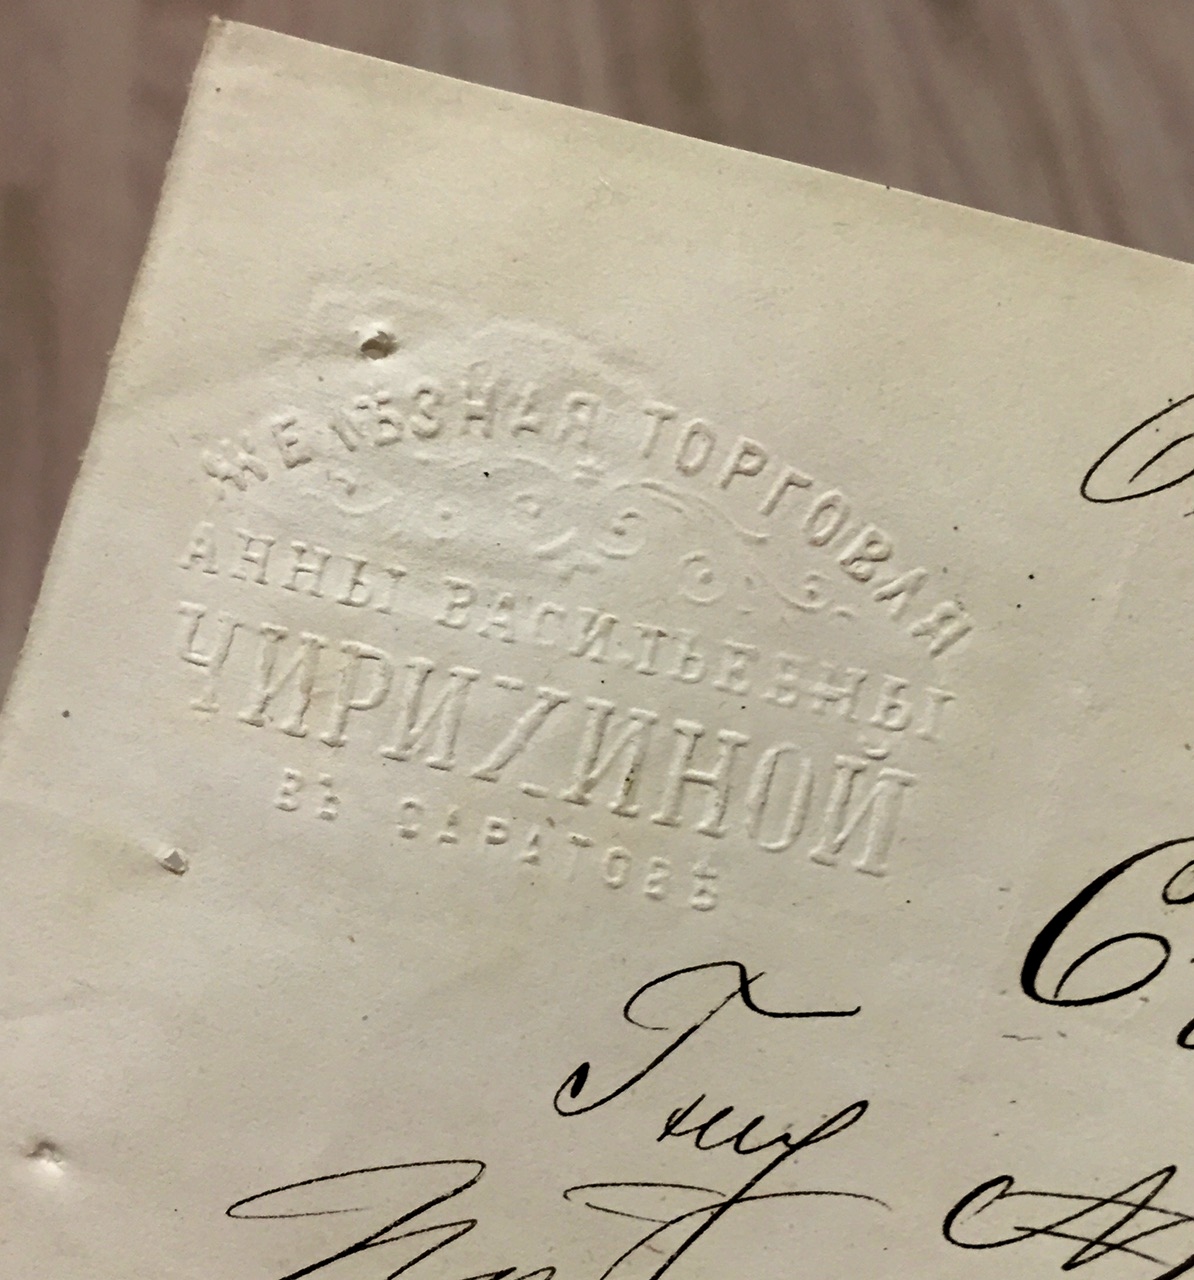 ЖЕЛѢЗНАЯ ТОРГОВАЯ
АННЫ ВАСИЛЬЕВНЫ
ЧИРИХИНОЙ
ВЪ САРАТОВѢ
Гну